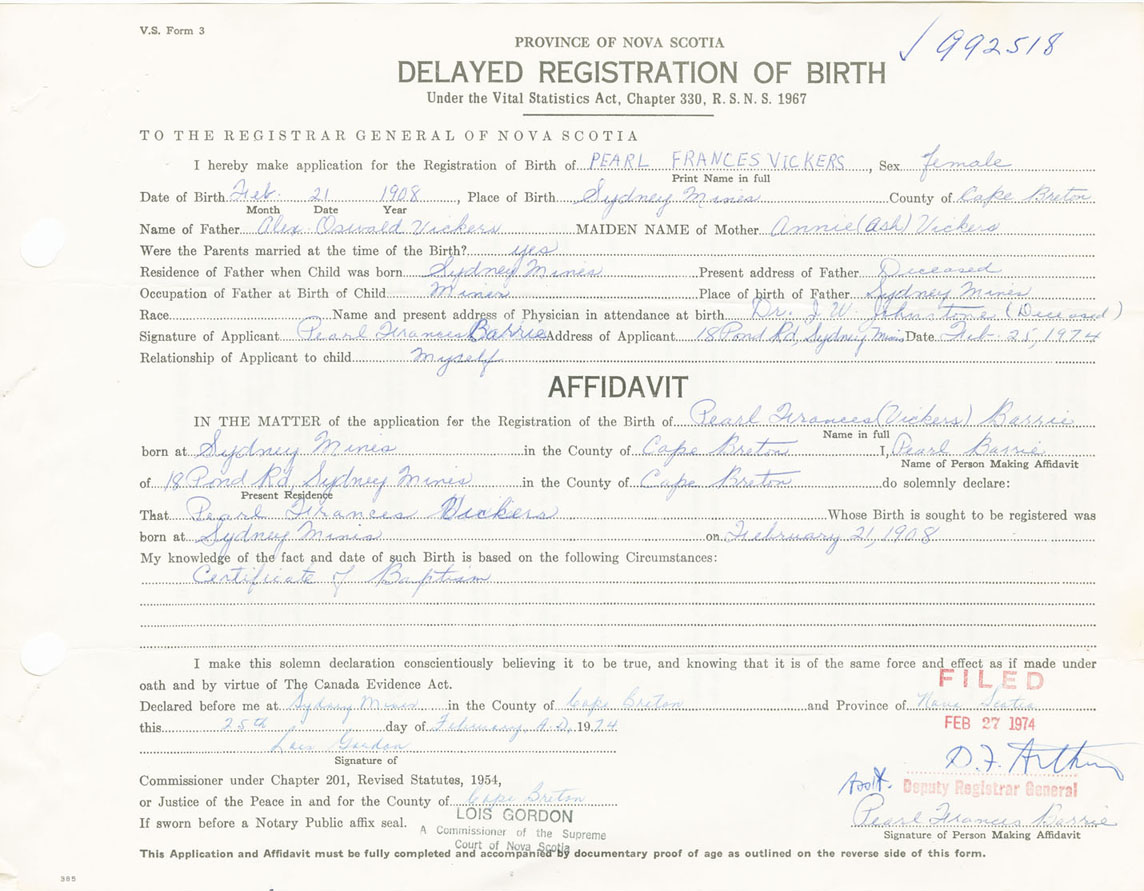 V.S. Form 3
√ 992518
PROVINCE OF NOVA SCOTIA
DELAYED REGISTRATION OF BIRTH
Under the Vital Statistics Act, Chapter 330, R. S. N. S. 1967
TO THE REGISTRAR GENERAL OF NOVA SCOTIA
I hereby make application for the Registration of Birth of PEARL FRANCES VICKERS, Sex female
Print Name in full
Date of Birth Feb. 21 1908, Place of Birth Sydney Mines County of Cape Breton
Month Date Year
Name of Father Alex Oswald Vickers MAIDEN NAME of Mother Annie (Ash) Vickers
Were the Parents married at the time of the Birth? yes
Residence of Father when Child was born Sydney Mines Present address of Father Deceased
Occupation of Father at Birth of Child Miner Place of birth of Father Sydney Mines
Race Name and present address of Physician in attendance at birth Dr. J. W. Johnstone (Deceased)
Signature of Applicant Pearl Frances Barrie Address of Applicant 18 Pond Rd, Sydney Mines Date Feb 25, 1974
Relationship of Applicant to child Myself
AFFIDAVIT
IN THE MATTER of the application for the Registration of the Birth of Pearl Frances (Vickers) Barrie
Name in full
born at Sydney Mines in the County of Cape Breton I, Pearl Barrie
Name of Person Making Affidavit
of 18 Pond Rd, Sydney Mines in the County of Cape Breton do solemnly declare:
Present Residence
That Pearl Frances Vickers Whose Birth is sought to be registered was
born at Sydney Mines on February 21, 1908
My knowledge of the fact and date of such Birth is based on the following Circumstances:
Certificate of Baptism
I make this solemn declaration conscientiously believing it to be true, and knowing that it is of the same force and effect as if made under
oath and by virtue of The Canada Evidence Act.
FILED
Declared before me at Sydney Mines in the County of Cape Breton and Province of Nova Scotia
this 25th day of February A.D., 1974
FEB 27 1974
Lois Gordon
Signature of
D. F. Arthur
Commissioner under Chapter 201, Revised Statutes, 1954,
Asst. Deputy Registrar General
or Justice of the Peace in and for the County of Cape Breton
Pearl Frances Barrie
LOIS GORDON
If sworn before a Notary Public affix seal.
A Commissioner of the Supreme
Court of Nova Scotia
Signature of Person Making Affidavit
This Application and Affidavit must be fully completed and accompanied by documentary proof of age as outlined on the reverse side of this form.
385